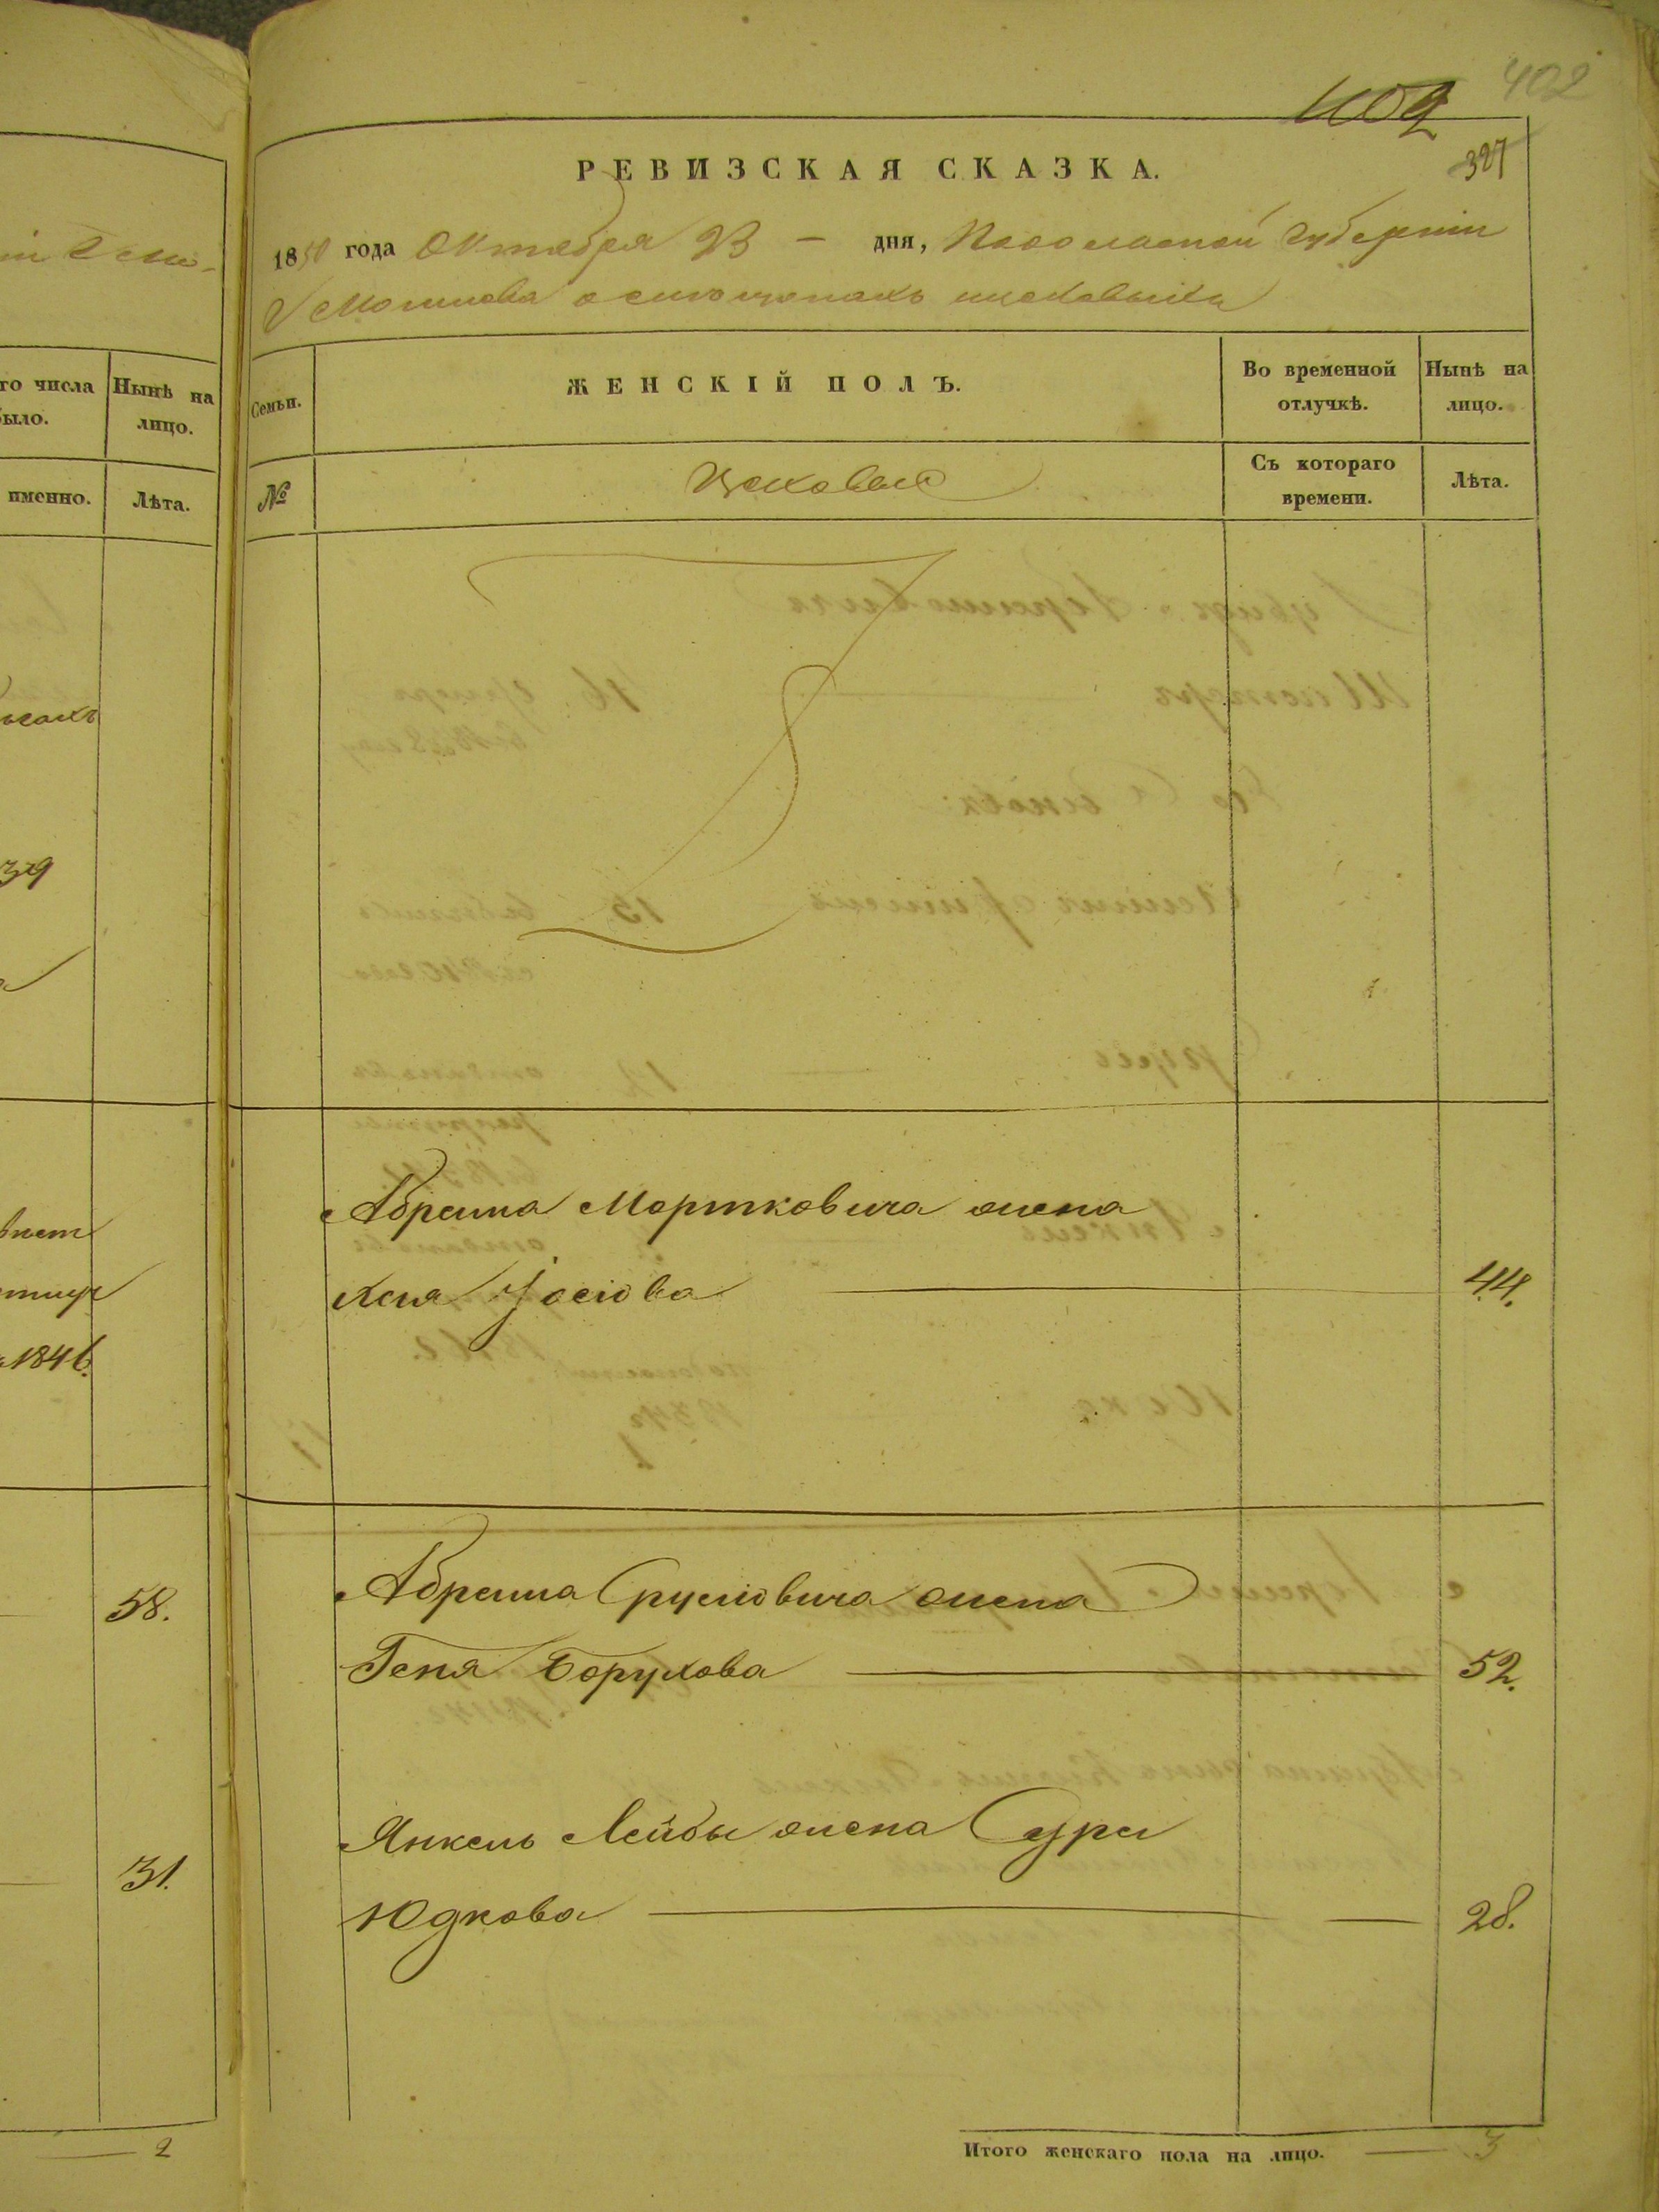 402
402
327
РЕВИЗСКАЯ СКАЗКА.
1850 года Октября 23 — дня, Подольской Губерніи
цеховыхъ
го числа
было.
Нынѣ на
лицо.
именно.
Лѣта.
Семьи.
ЖЕНСКІЙ ПОЛЪ.
Во временной
отлучкѣ.
Нынѣ на
лицо.
№
Цеховые
Съ котораго
времени.
Лѣта.
39
1846.
58.
31.
2
Абрама Мортковича жена
Хая Іосіова 44.
Абрама Сруліовича жена
Геня Борухова 52.
Янкель Лейбы жена Сура
Юдкова 28.
Итого женскаго пола на лицо. — 3